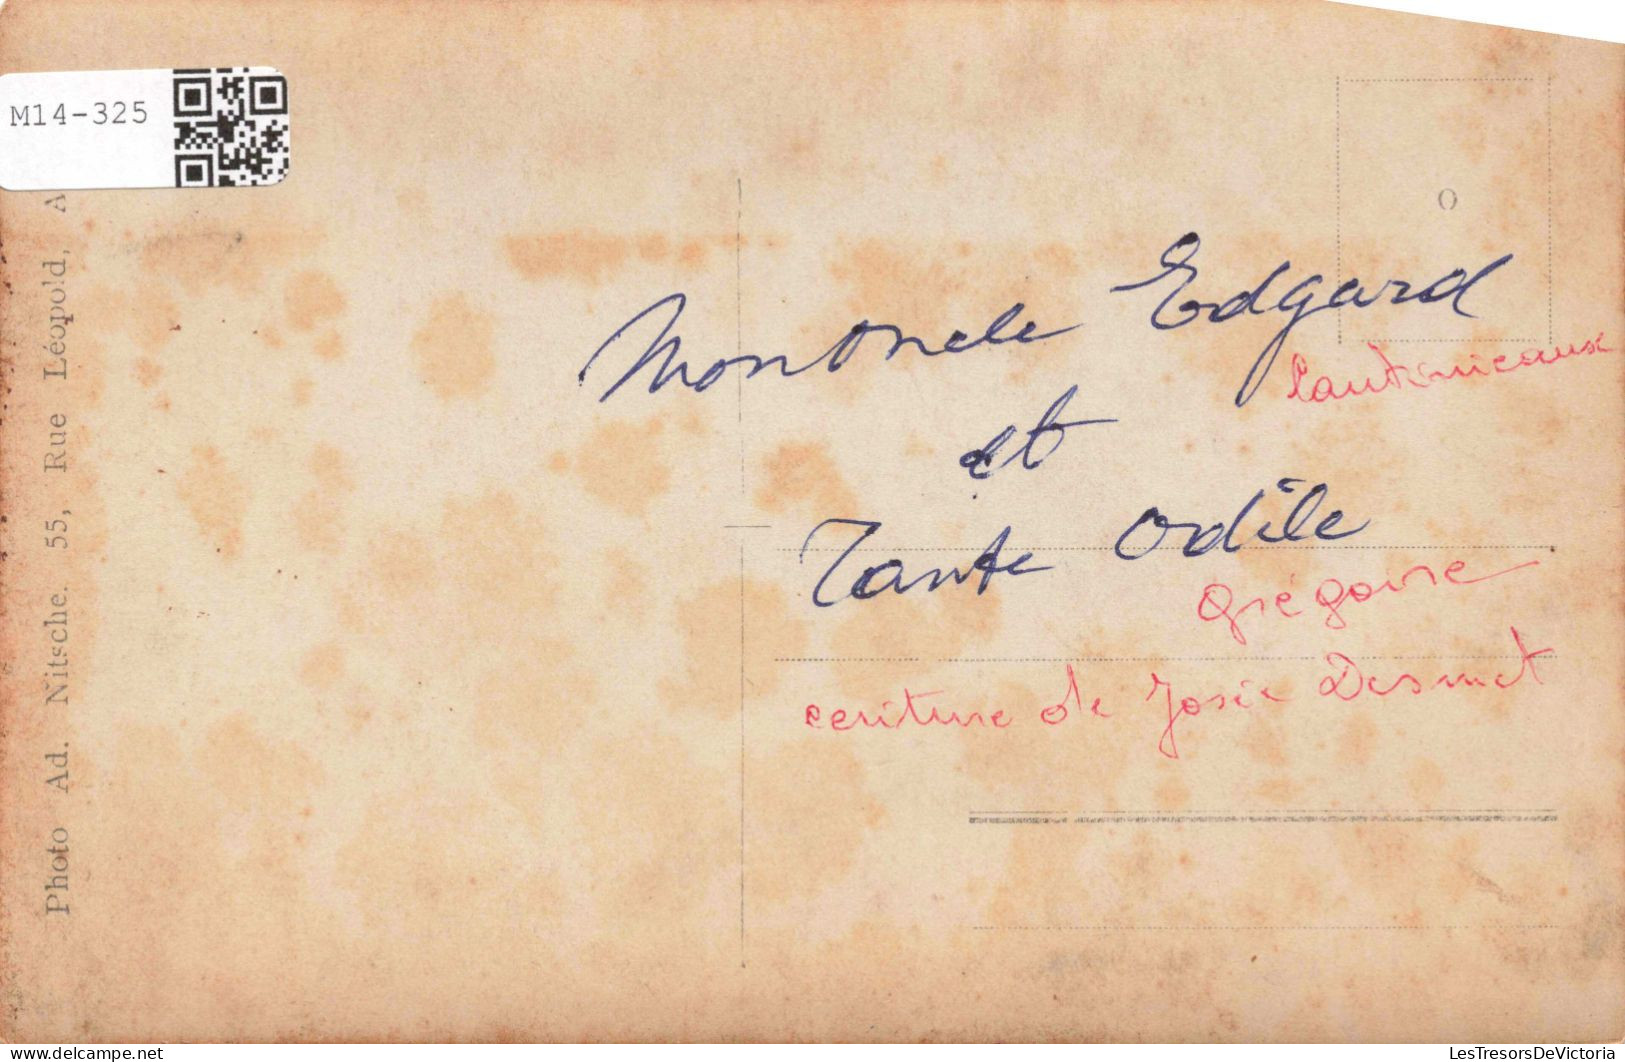 M14-325
Photo Ad. Nitsche. 55, Rue Léopold, A
O
Mon Oncle Edgard
et
Tante Odile
Grégoire
ecriture de Josée Desmet
www.delcampe.net
LesTresorsDeVictoria